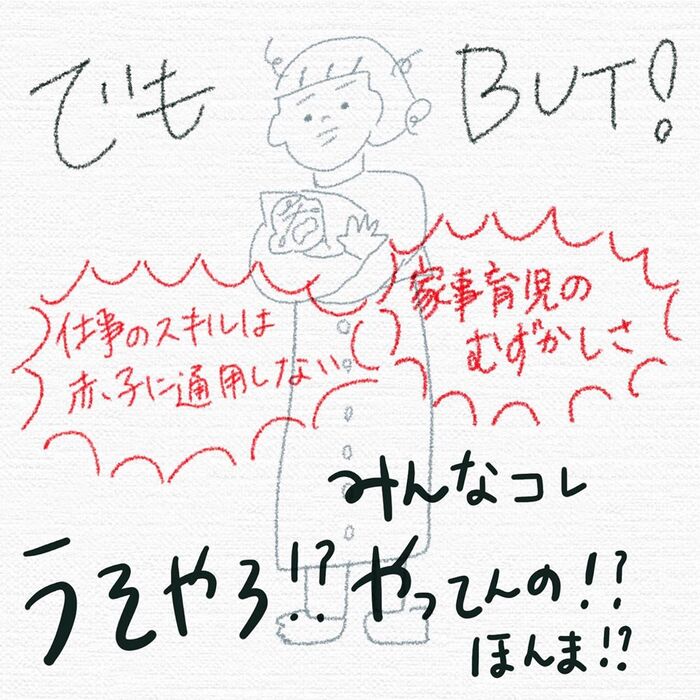 でも BUT!
仕事のスキルは
赤、子に通用しない
家事育児の
むずかしさ
みんなコレ
うそやろ!? やってんの!?
ほんま!?